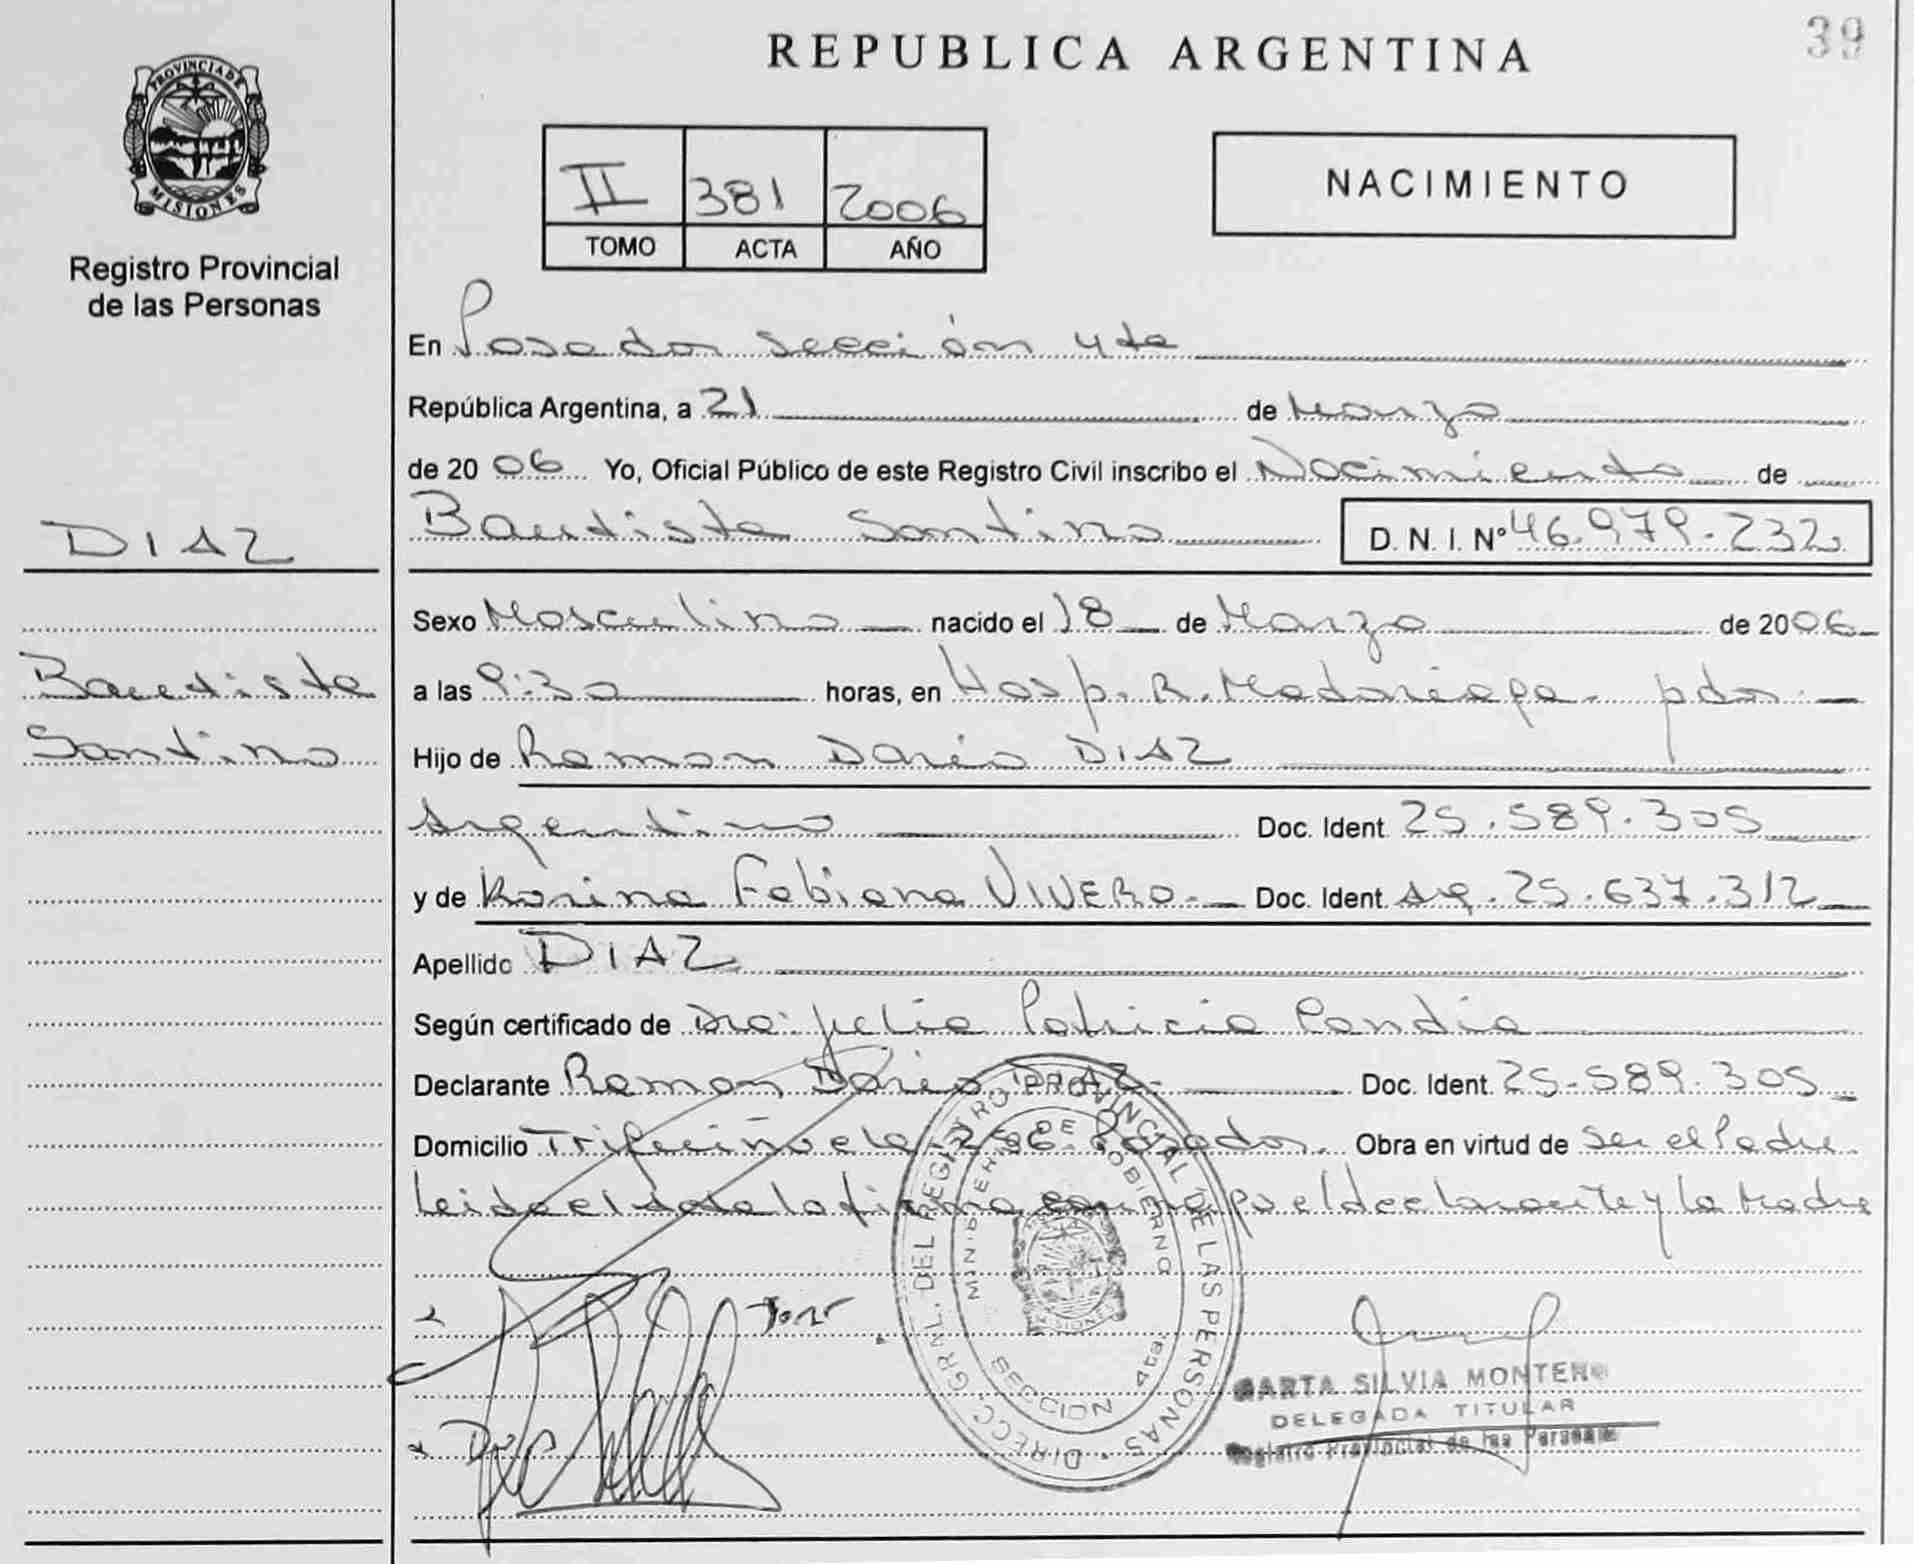 REPUBLICA ARGENTINA
39
PROVINCIA DE
MISIONES
Registro Provincial
de las Personas
II 381 2006
TOMO ACTA AÑO
NACIMIENTO
En Posadas sección 4ta
República Argentina, a 21 de Marzo
de 2006 Yo, Oficial Público de este Registro Civil inscribo el Nacimiento de
DIAZ
Bautista Santino D. N. I. Nº 46.979.232
Sexo Masculino nacido el 18 de Marzo de 2006
Bautista
a las 9:30 horas, en Hosp. R. Madariaga - pdas
Santino
Hijo de Ramon Dario DIAZ
Argentino Doc. Ident. 25.589.305
y de Karina Fabiana VIVERO.- Doc. Ident. Arg. 25.637.312
Apellido DIAZ
Según certificado de Dra. Julia Patricia
Declarante Ramon Dario DIAZ- Doc. Ident. 25.589.305
Domicilio 286 Posadas. Obra en virtud de ser el Padre
Leida el acta la firma conmigo el declarante y la Madre
DIRECC. GRAL. DEL REGISTRO PROVINCIAL DE LAS PERSONAS
MINISTERIO DE GOBIERNO
MISIONES
SECCION 4ta
MARTA SILVIA MONTERO
DELEGADA TITULAR
Registro Provincial de las Personas